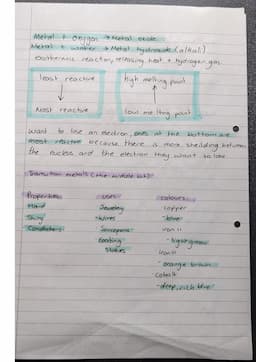 Metal + oxygen → Metal oxide
Metal + water → Metal hydroxide (alkali)
Exothermic reaction, releasing heat + hydrogen gas
least reactive
Most reactive
high melting point
low melting point
Want to lose an electron, ones at the bottom are
most reactive because there is more sheilding between
the nucleus and the electron they want to lose.
Transition metals (the middle bit)
Properties
Hard
Shiny
Conductors
uses
Jewelry
wires
Saucepans
Statues
colours
copper
- blue
iron II
- light green
iron III
- orange brown
cobalt
- deep rich blue